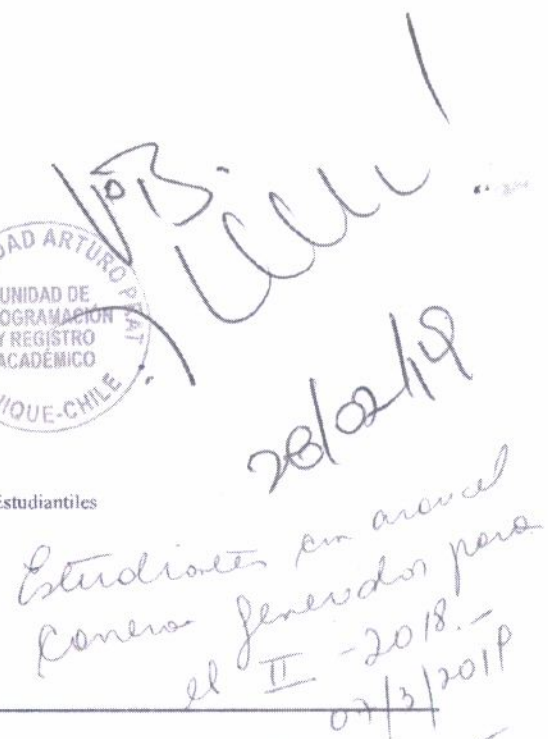 VºB.
DAD ARTURO PRAT
UNIDAD DE
OGRAMACIÓN
Y REGISTRO
ACADÉMICO
IQUE-CHILE
28/02/19
Estudiantiles
Estudiantes con arancel
Carrera generados para
el II -2018.-
07/3/2019